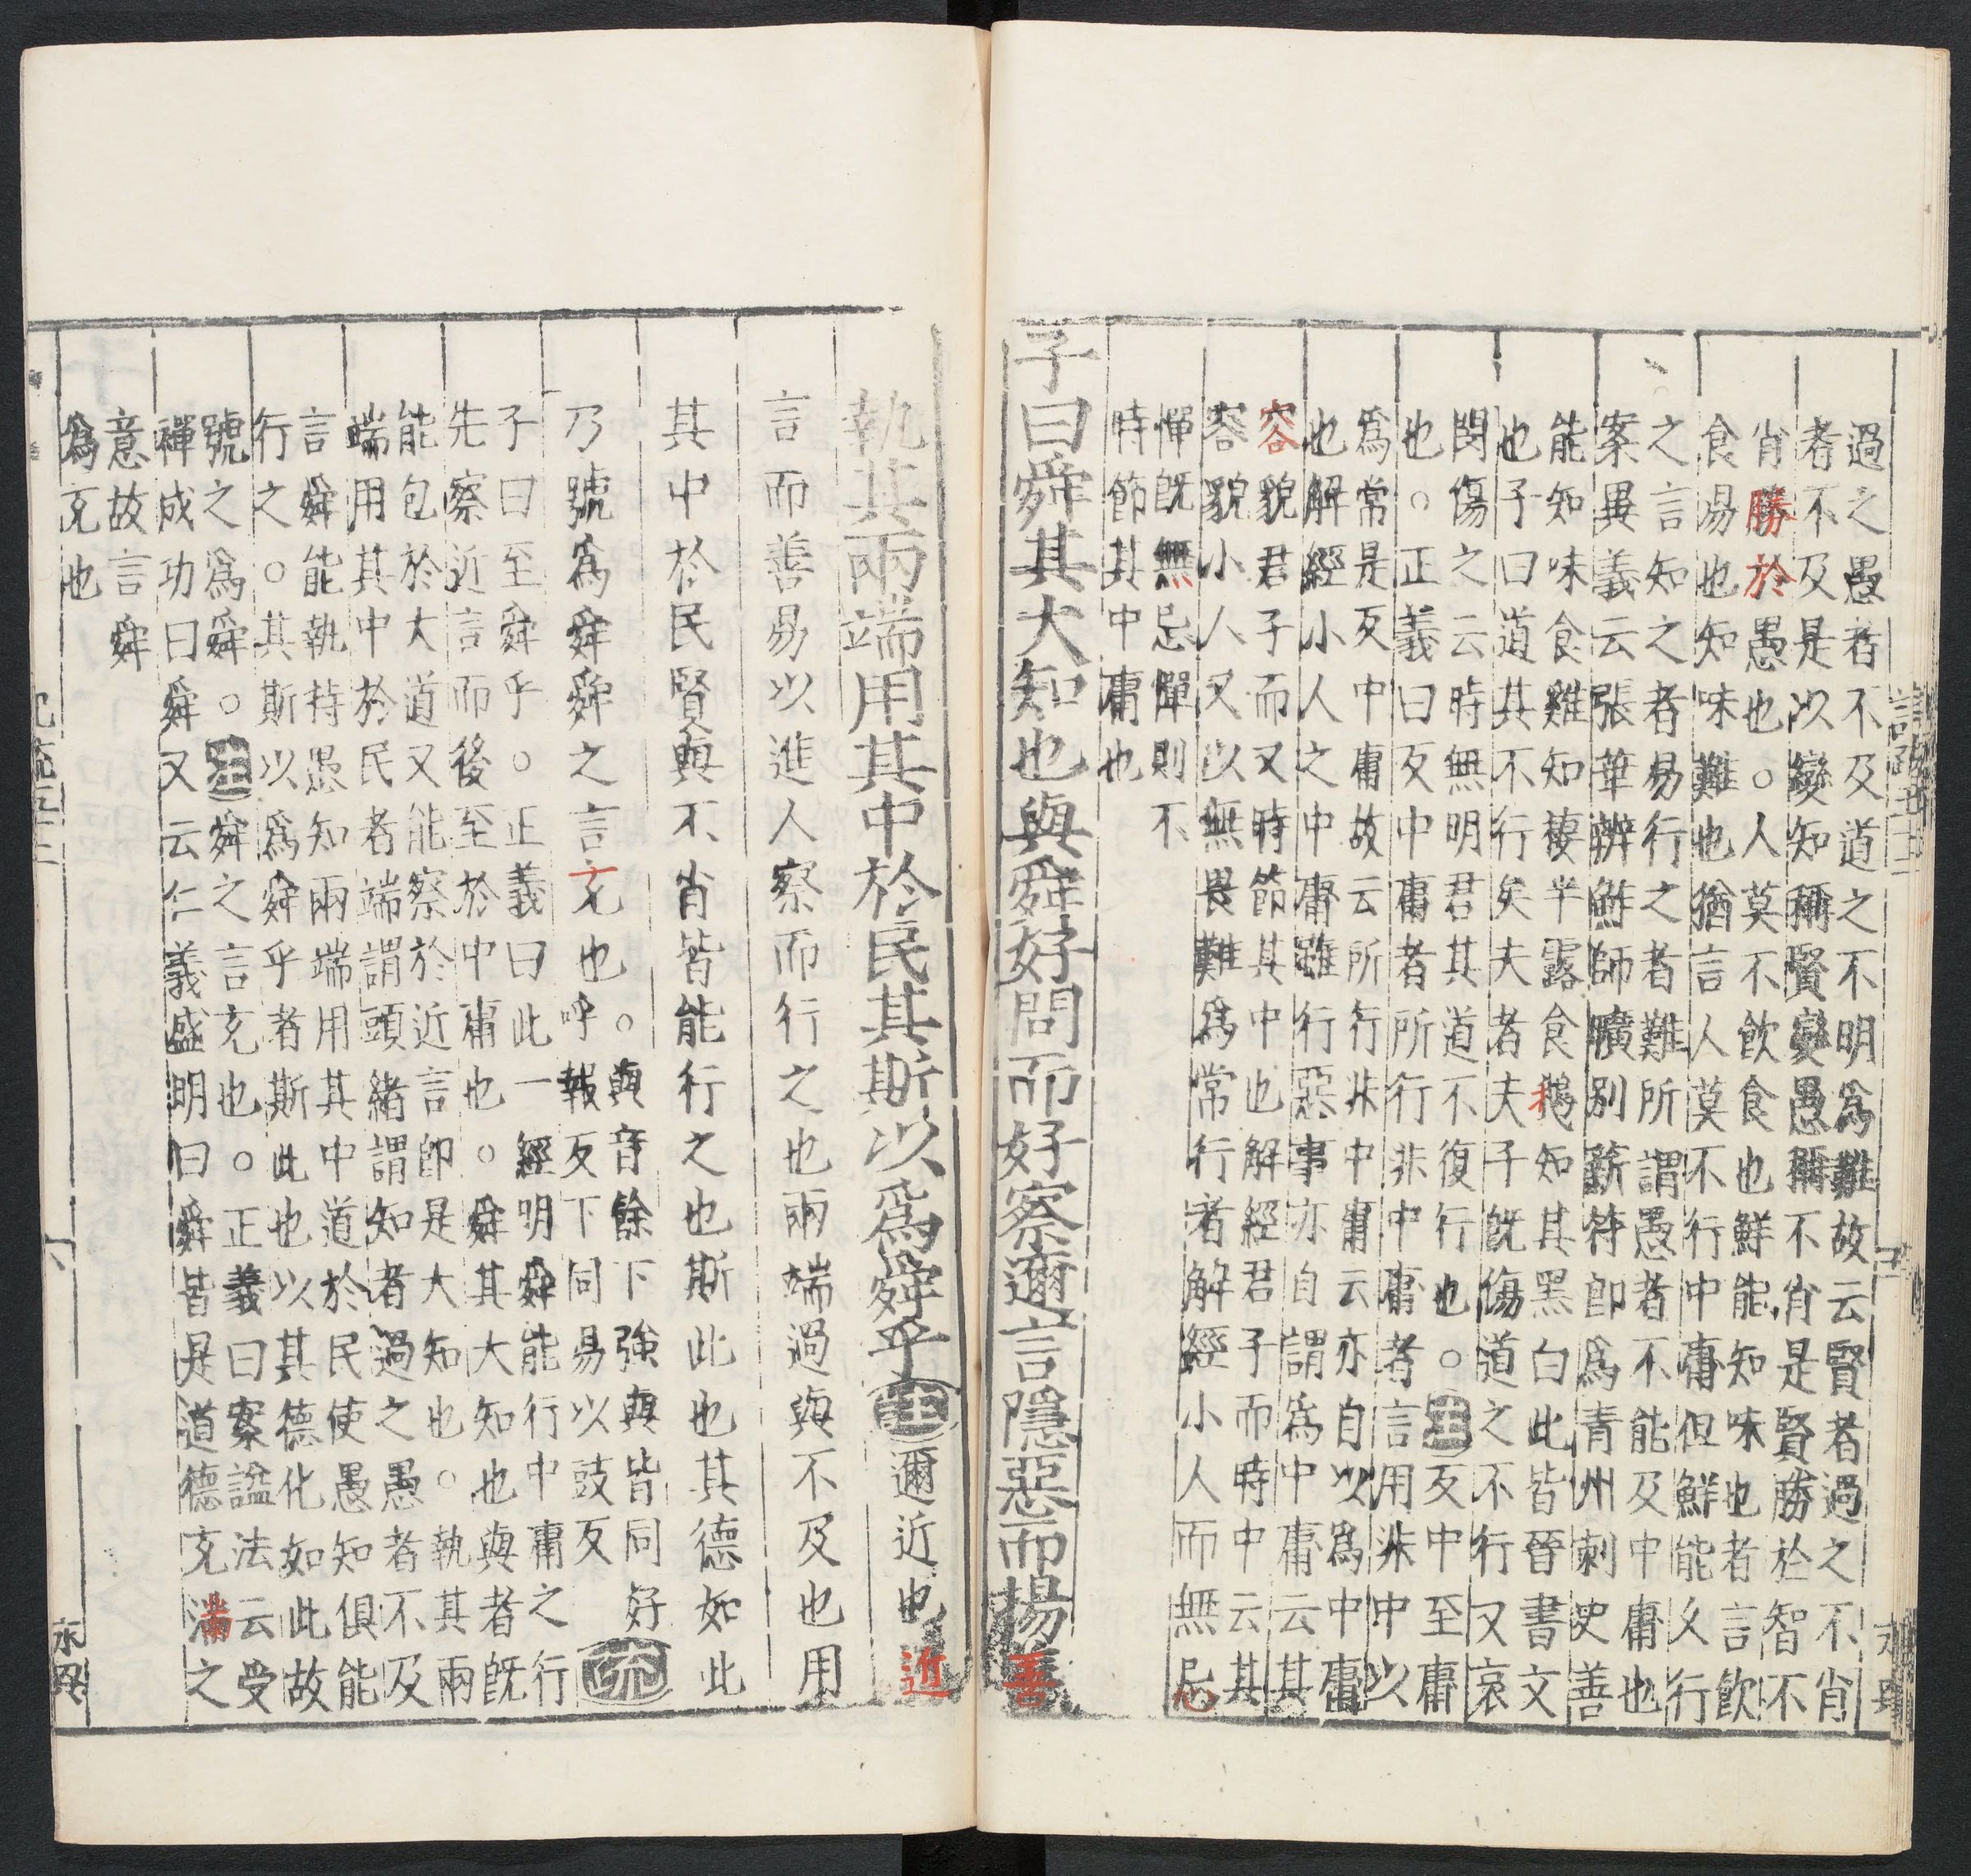 過之愚者不及道之不明爲難故云賢者過之不肖
者不及是以變知稱賢變愚稱不肖是賢勝於智不
肖勝於愚也○人莫不飲食也鮮能知味也者言飲
食易也知味難也猶言人莫不行中庸但鮮能久行
之言知之者易行之者難所謂愚者不能及中庸也
案異義云張華辨鮓師曠別薪符朗爲青州刺史善
能知味食雞知棲半露食鵝知其黑白此皆晉書文
也子曰道其不行矣夫者夫子既傷道之不行又哀
閔傷之云時無明君其道不復行也○注反中至庸
也○正義曰反中庸者所行非中庸者言用非中以
爲常是反中庸故云所行非中庸云亦自以爲中庸
也解經小人之中庸雖行惡事亦自謂爲中庸云其
容貌君子而又時節其中也解經君子而時中云其
容貌小人又以無畏難爲常行者解經小人而無忌
憚既無忌憚則不
時節其中庸也
子曰舜其大知也與舜好問而好察邇言隱惡而揚善
執其兩端用其中於民其斯以爲舜乎注邇近也近
言而善易以進人察而行之也兩端過與不及也用
其中於民賢與不肖皆能行之也斯此也其德如此
乃號爲舜舜之言充也○與音餘下強與皆同好
呼報反下同易以豉反疏
子曰至舜乎○正義曰此一經明舜能行中庸之行
先察近言而後至於中庸也○舜其大知也與者既
能包於大道又能察於近言即是大知也○執其兩
端用其中於民者端謂頭緒謂知者過之愚者不及
言舜能執持愚知兩端用其中道於民使愚知俱能
行之○其斯以爲舜乎者斯此也以其德化如此故
號之爲舜○注舜之言充也○正義曰案謚法云受
禪成功曰舜又云仁義盛明曰舜皆是道德充滿之
意故言舜
爲充也
記疏五十二
八